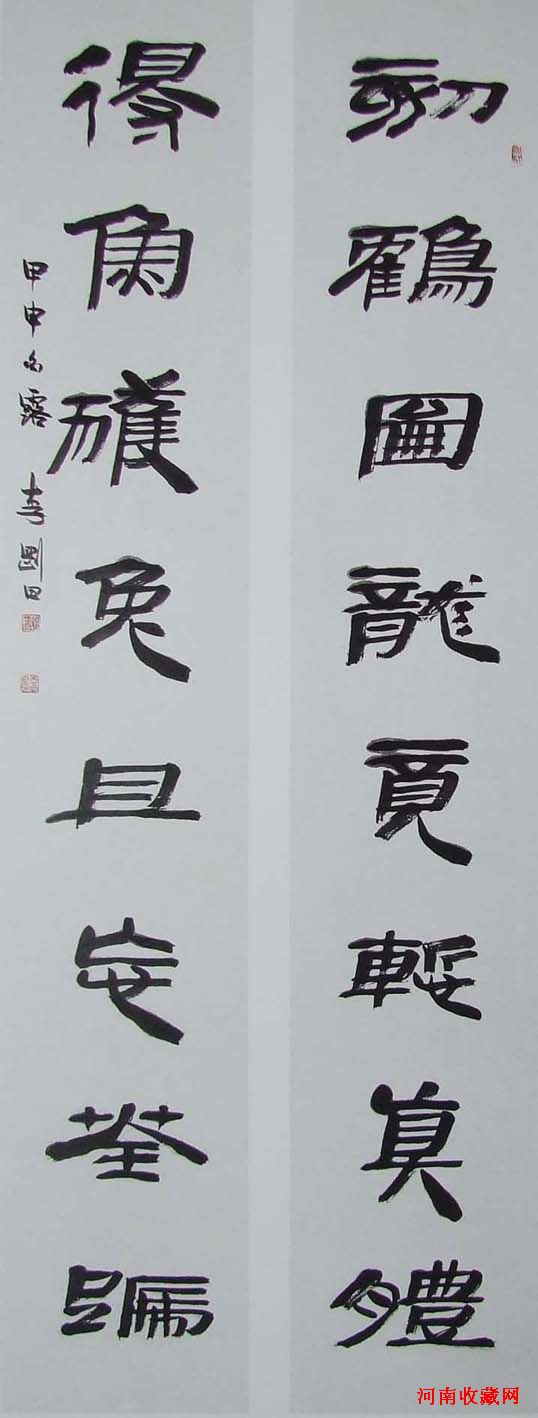 刻鶴圖龍竟真體
得魚獲兔且忘荃蹄
甲申白露 李剛田
河南收藏网